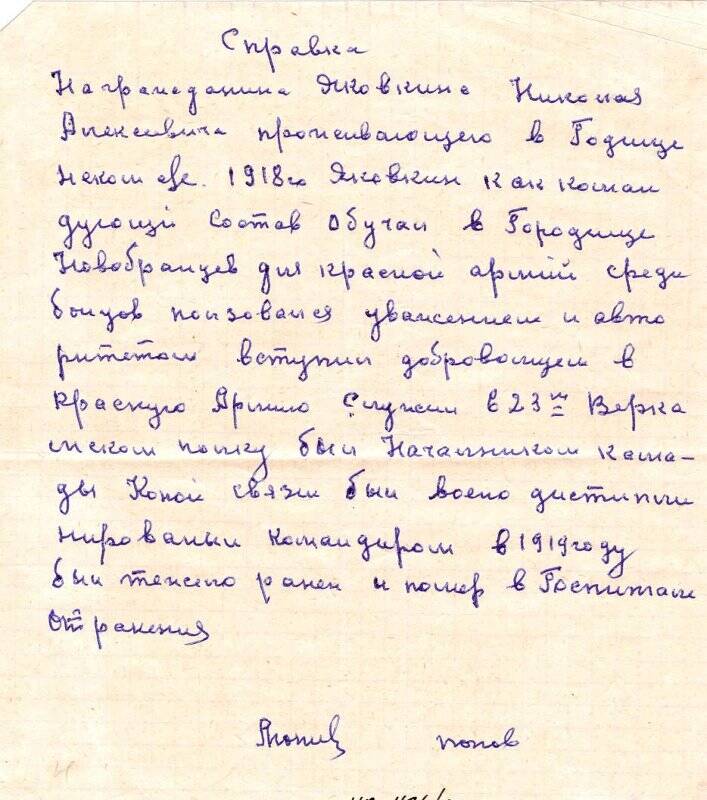 Справка
На гражданина Яковкина Николая
Алексеевича проживающего в Годище
1918го Яковкин как коман
дующий Состав Обучал в Городище
Новобранцев для красной армий среди
бойцов ползовался уважением и авто
ритетом вступил доброволцем в
красную Армию Служил в 23м Верха
мском полку был Началником кама-
ды Коной связи был воено дистипли
нированым командиром в 1919 году
был тежело ранен и помер в Госпитале
От ранения
попов